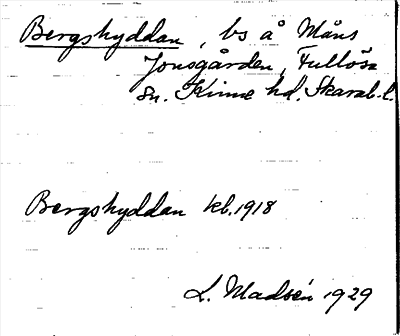 Bergshyddan, bs å Måns
Jonsgården, Fullösa
sn. Kinne hd. Skarab. l.
Bergshyddan kb. 1918
L. Madsén 1929